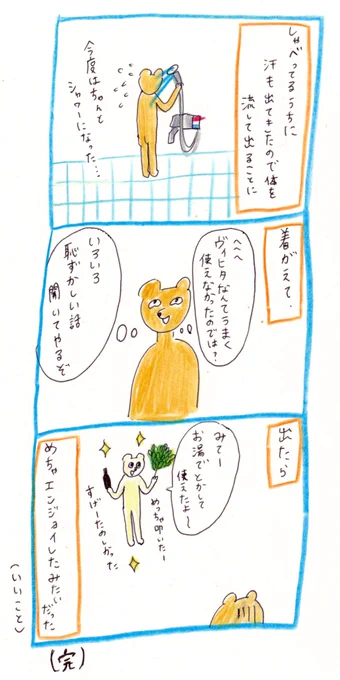 しゃべってるうちに
汗も出てきたので体を
流して出ることに
今度はちゃんと
シャワーになった…
着がえて、
へへへ
ヴィヒタなんてうまく
使えなかったのでは？
いろいろ
恥ずかしい話
聞いてやるぞ
出たら
みてー
お湯でとかして
使えたよ〜
めっちゃ叩いたー
すげーたのしかった
めちゃエンジョイしたみたいだった
(いいこと)
(完)